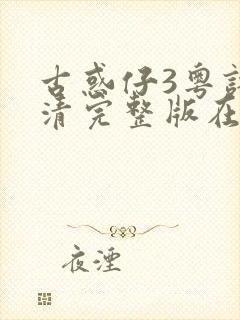 古惑仔3粤
清完整版在
夜湮